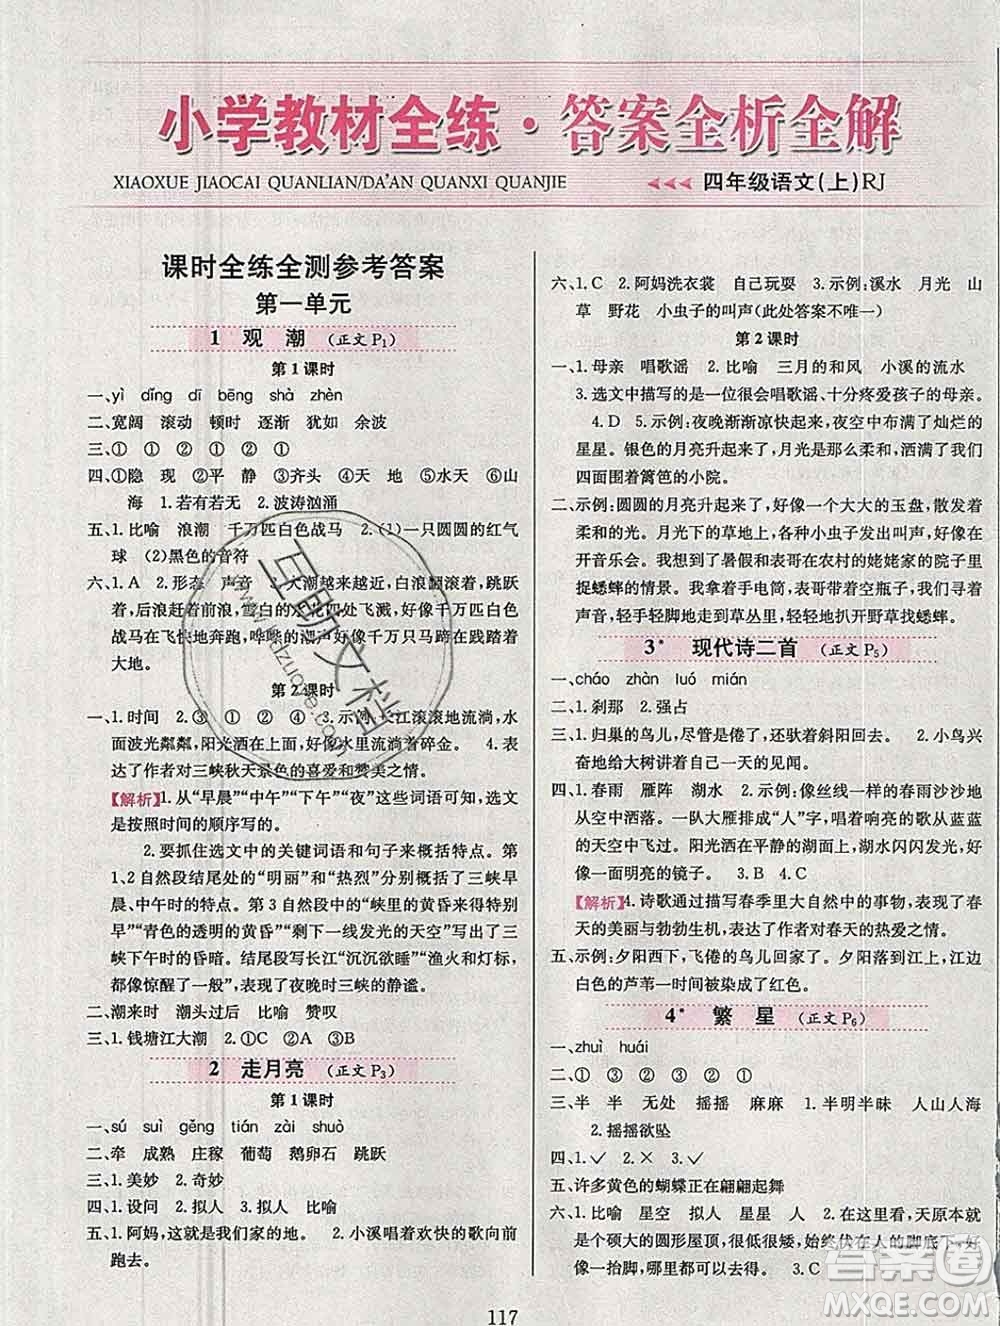 小学教材全练·答案全析全解
XIAOXUE JIAOCAI QUANLIAN/DA'AN QUANXI QUANJIE
四年级语文(上)RJ
课时全练全测参考答案
第一单元
1 观 潮 (正文 P₁)
第 1 课时
一、yì dǐng dī bēng shà zhèn
二、宽阔 滚动 顿时 逐渐 犹如 余波
三、① ① ② ① ② ①
四、①隐 现 ②平 静 ③齐头 ④天 地 ⑤水天 ⑥山
海 1.若有若无 2.波涛汹涌
五、1.比喻 浪潮 千万匹白色战马 2.(1)一只圆圆的红气
球 (2)黑色的音符
六、1.A 2.形态 声音 3.大潮越来越近,白浪翻滚,跳跃
着,后浪赶着前浪,雪白的水花四处飞溅,好像千万匹白色
战马在飞快地奔跑,哗哗的潮声好像千万只马蹄在践踏着
大地。
第 2 课时
一、1.时间 2.③ ① ② ④ 3.示例:长江滚滚地流淌,水
面波光粼粼,阳光洒在上面,好像水里流淌着碎金。 4.表
达了作者对三峡秋天景色的喜爱和赞美之情。
【解析】1.从“早晨”“中午”“下午”“夜”这些词语可知,选文
是按照时间的顺序写的。
2.要抓住选文中的关键词语和句子来概括特点。第
1、2自然段结尾处的“明丽”和“热烈”分别概括了三峡早
晨、中午时的特点。第 3 自然段中的“峡里的黄昏”
“青色的透明的黄昏”“剩下一线发光的天空”写出了三
峡下午时的昏暗。描写长江“沉沉欲睡”“渔火和灯标,
都像惊醒了一般”,突出了夜晚时三峡的静谧。
二、潮来时 潮头过后 比喻 赞叹
三、1.钱塘江大潮 2.①C ②A ③B
2 走月亮 (正文 P₃)
第 1 课时
一、sú suì gěng tián zài shuò
二、牵 成熟 庄稼 葡萄 鹅卵石 跃
三、1.美妙 2.奇妙
四、1.设问 2.拟人 3.拟人 比喻
五、1.阿妈,这就是我们家的地。 2.小溪唱着欢快的歌向前
跑去。
六、1.C 2.阿妈洗衣裳 自己玩耍 3.示例:溪水 月光 山
草 野花 小虫子的叫声(此处答案不唯一)
第 2 课时
一、1.母亲 唱歌谣 2.比喻 三月的和风 小溪的流水
3.选文中描写的是一个喜欢唱歌谣、十分疼爱孩子的母亲。
4.D 5.示例:夜晚渐渐凉起来,夜空中布满了灿烂的
星星。银色的月亮升起来了,月光是那么柔和,照亮了我们
四面围着篱笆的小院。
二、示例:圆圆的月亮升起来了,好像一个大大的玉盘,散发着
柔和的光。月光下的草地上,各种小虫子发出叫声,好像在
开音乐会。我想到了暑假和表哥在农村的姥姥家的院子里
捉蟋蟀的情景。我拿着手电筒,表哥带着空瓶子,我们寻着
声音,轻手轻脚地走到草丛边,轻轻地扒开野草找蟋蟀。
3* 现代诗二首 (正文 P₅)
一、cháo zhàn luó mián
二、1.刹那 2.强占
三、1.归巢的鸟儿,尽管是倦了,还驮着斜阳回去。 2.小鸟兴
奋地给大树讲着自己一天的见闻。
四、1.春雨 雁阵 湖水 2.示例:像丝线一样的春雨沙沙地
从空中洒落。一队大雁排成“人”字,唱着响亮的歌从蓝蓝
的天空中飞过。阳光洒在平静的湖面上,湖水闪闪发光,
好像一面明亮的镜子。 3.B 4.C
【解析】4.诗歌通过描写春季里大自然中的事物,表现了春
天的美丽与勃勃生机,表达了对春天的热爱之情。
五、示例:夕阳西下,飞倦的鸟儿们回家了。夕阳洒在江上,江边
白色的芦苇一时间被染成了红色。
4* 繁 星 (正文 P₆)
一、zhuì huái
二、① ③ ② ② ①
三、半 半 无处 摇摇 麻麻 1.半明半昧 人山人海
2.摇摇欲坠
四、1.✓ 2.× 3.✓
五、许多黄色的蝴蝶正在翩翩起舞
六、1.比喻 星空 拟人 星星 人 2.在这里看,天原本就
是个硕大的圆形屋顶,很低很矮,始终伏在人的脚底下,好
像一抬脚,可哪里都可以走进天的里面。 3.C
117
互助文档
www.hdzuoye.com
答案圈
MXQE.COM